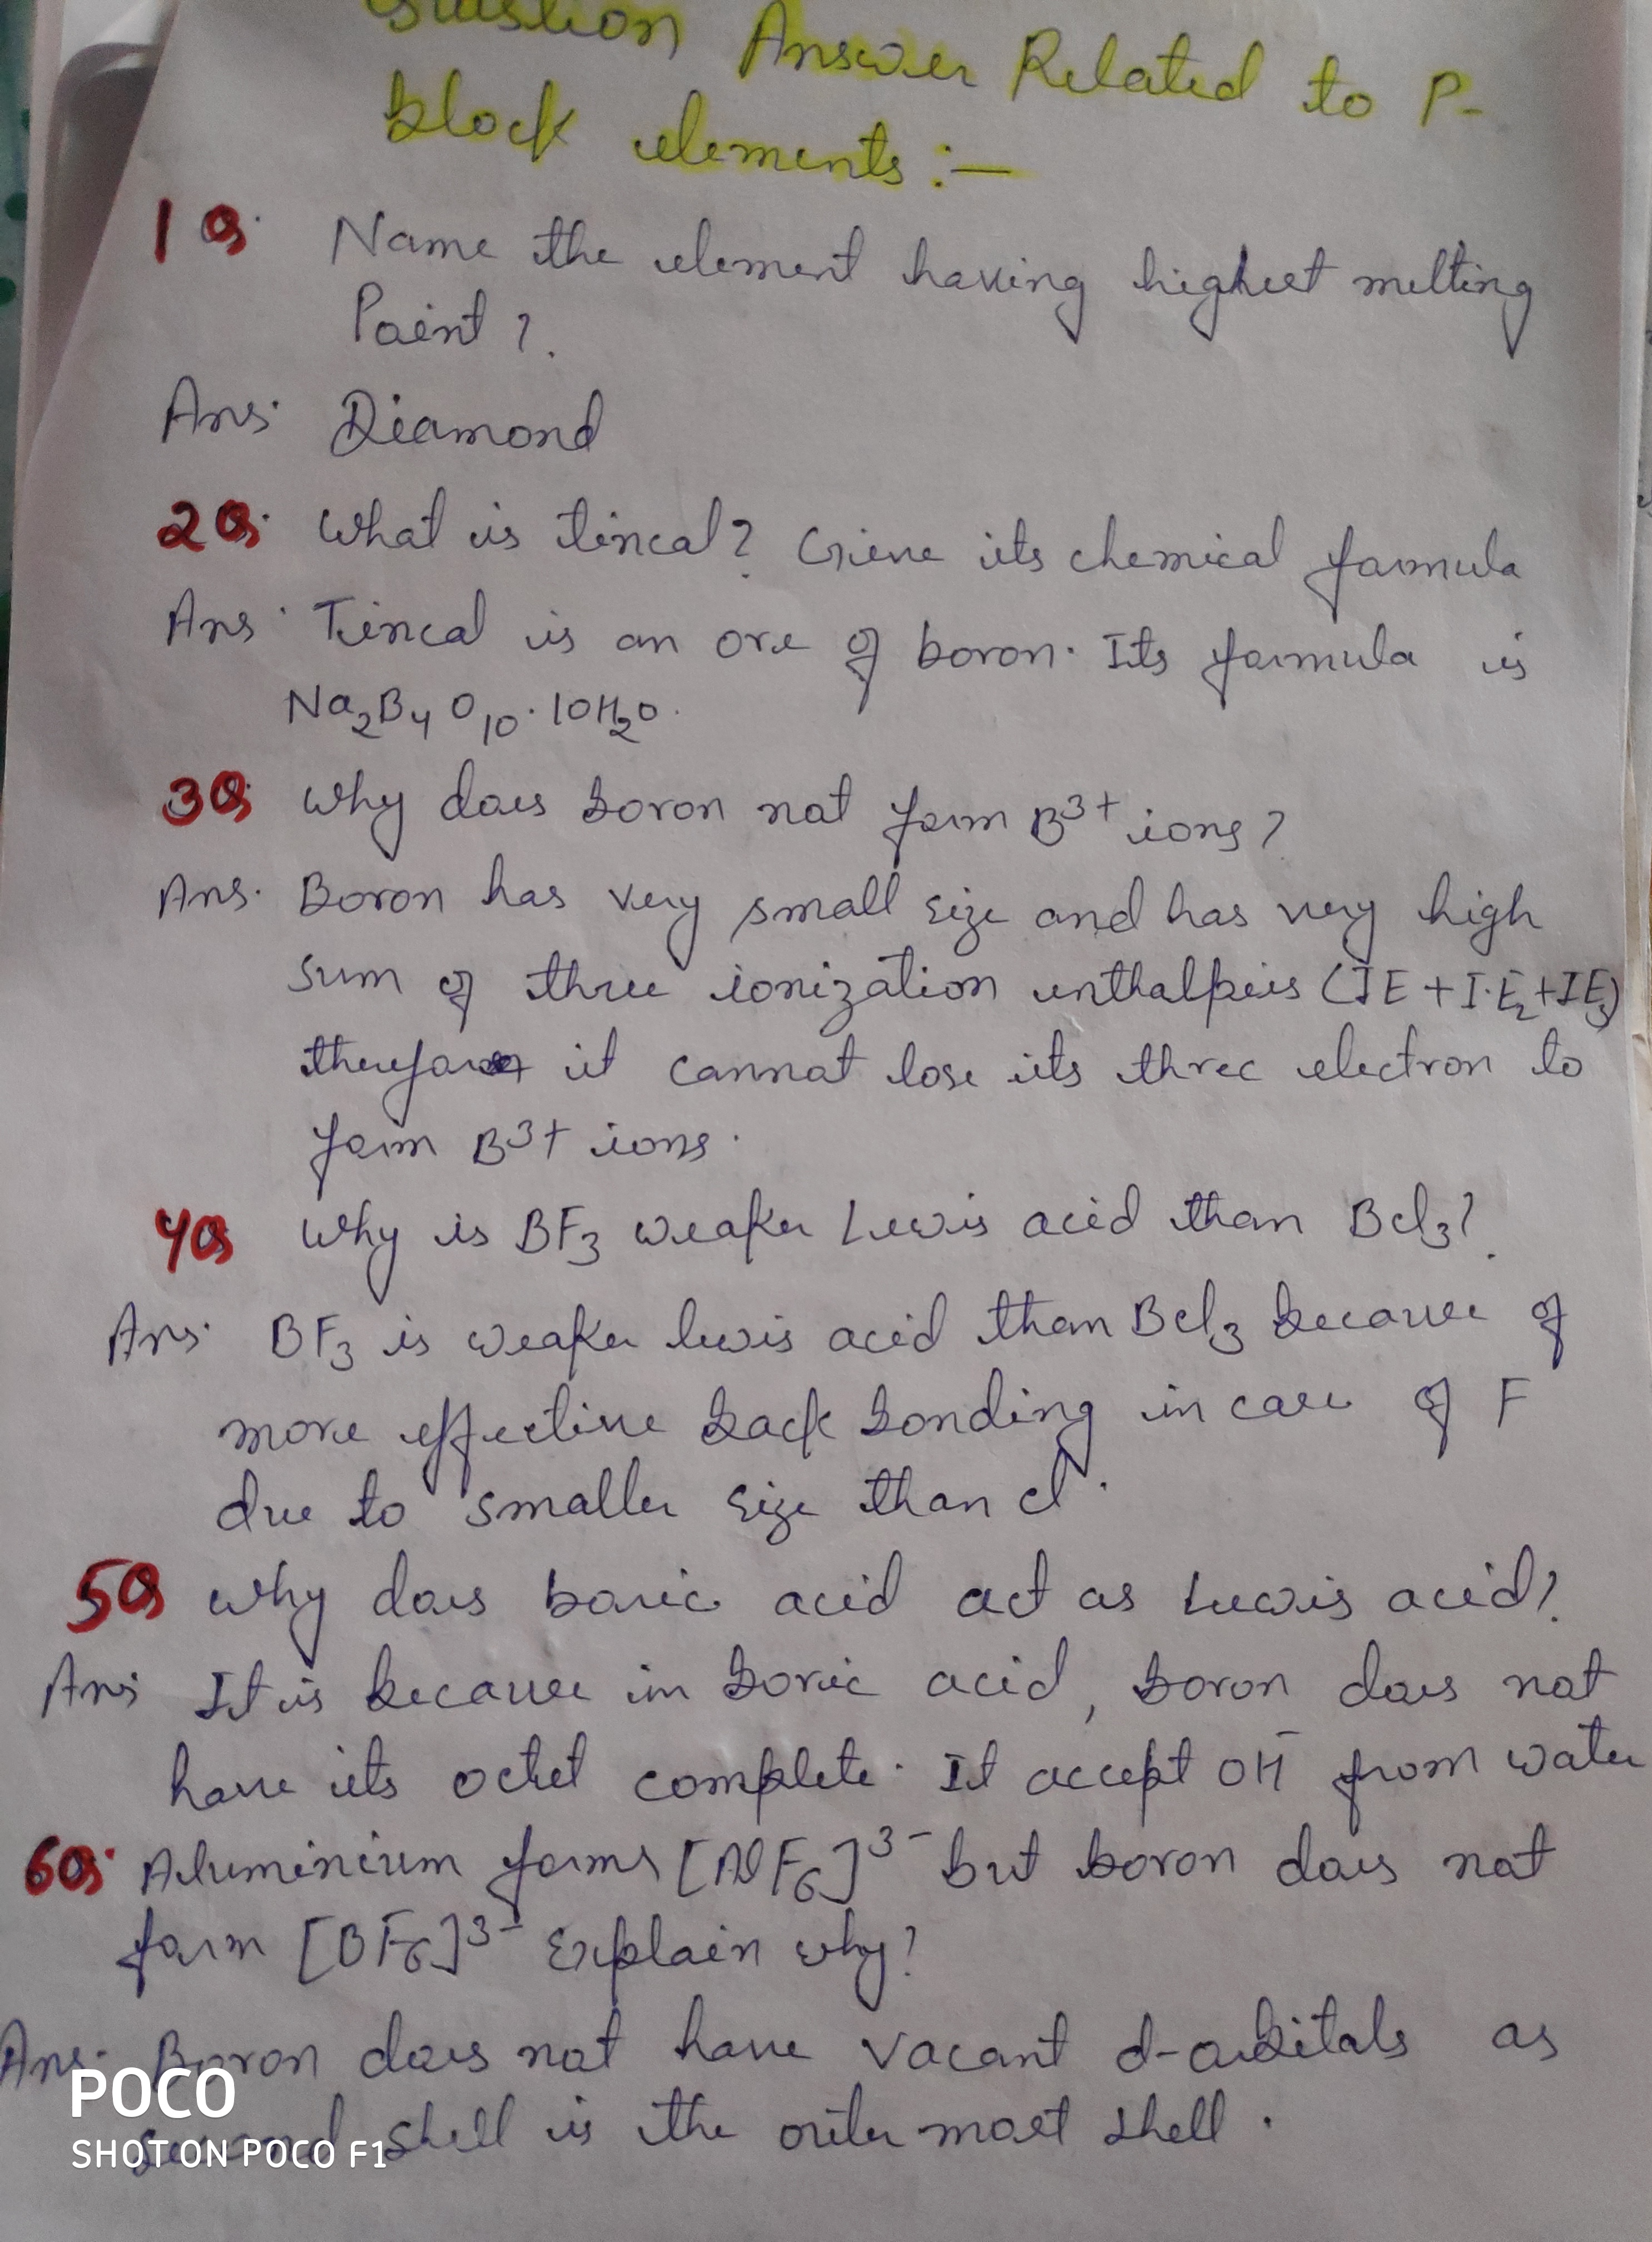 Question Answer Related to P-
block elements :-
1Q. Name the element having highest melting
Point ?
Ans. Diamond
2Q. What is tincal? Give its chemical formula
Ans. Tincal is an ore of boron. Its formula is
Na₂B₄O₁₀.10H₂O.
3Q. Why does boron not form B³⁺ ions?
Ans. Boron has very small size and has very high
sum of three ionization enthalpies (IE + I.E₂ + IE₃)
therefore it cannot lose its three electron to
form B³⁺ ions.
4Q Why is BF₃ weaker Lewis acid than BCl₃?
Ans. BF₃ is weaker lewis acid than BCl₃ because of
more effective back bonding in case of F
due to smaller size than Cl.
5Q Why does boric acid act as Lewis acid?
Ans It is because in boric acid, boron does not
have its octet complete. It accept OH⁻ from water
6Q. Aluminium forms [AlF₆]³⁻ but boron does not
form [BF₆]³⁻ Explain why?
Ans. Boron does not have vacant d-orbitals as
second shell is the outer most shell.
POCO
SHOT ON POCO F1